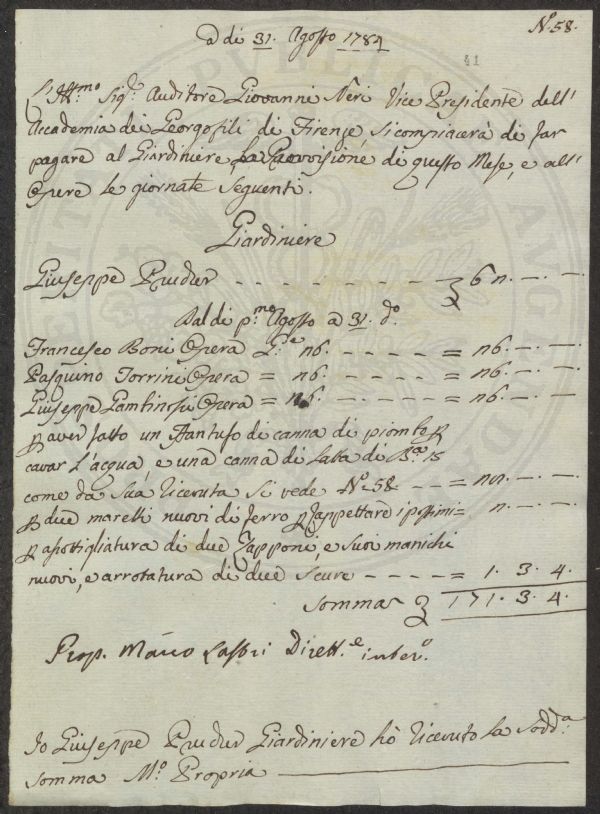 N.º 58.
a di 31. Agosto 1784
41
L'Ill.mo Sig.r Auditore Giovanni Neri Vice Presidente dell'
Accademia dei Georgofili di Firenze, si compiacerà di far
pagare al Giardiniere la Provvisione di questo Mese, e all'
Opere le giornate seguenti.
Giardiniere
Giuseppe
Dal di p.mo Agosto a 31. d.o
Francesco Boni Opera G.e n6. - - - - = n6. — —
Pasquino Torrini Opera = n6. - - - - = n6. — —
Giuseppe Opera = n6. - - - - = n6. — —
p aver fatto un Stantufo di canna di piombo p
cavar l'acqua, e una canna di Latta di B.a 15
come da sua ricevuta si vede N.º 58 - - =
p due marelli nuovi di ferro p
p di due Zapponi, e suoi manichi
nuovi, e arrotatura di due Scure - - - - = 1. 3. 4.
Somma 171. 3. 4.
Prop. Marco Lastri Dirett.e inter.o
Io Giuseppe Giardiniere hò ricevuto la Sudd.a
Somma M.o Propria